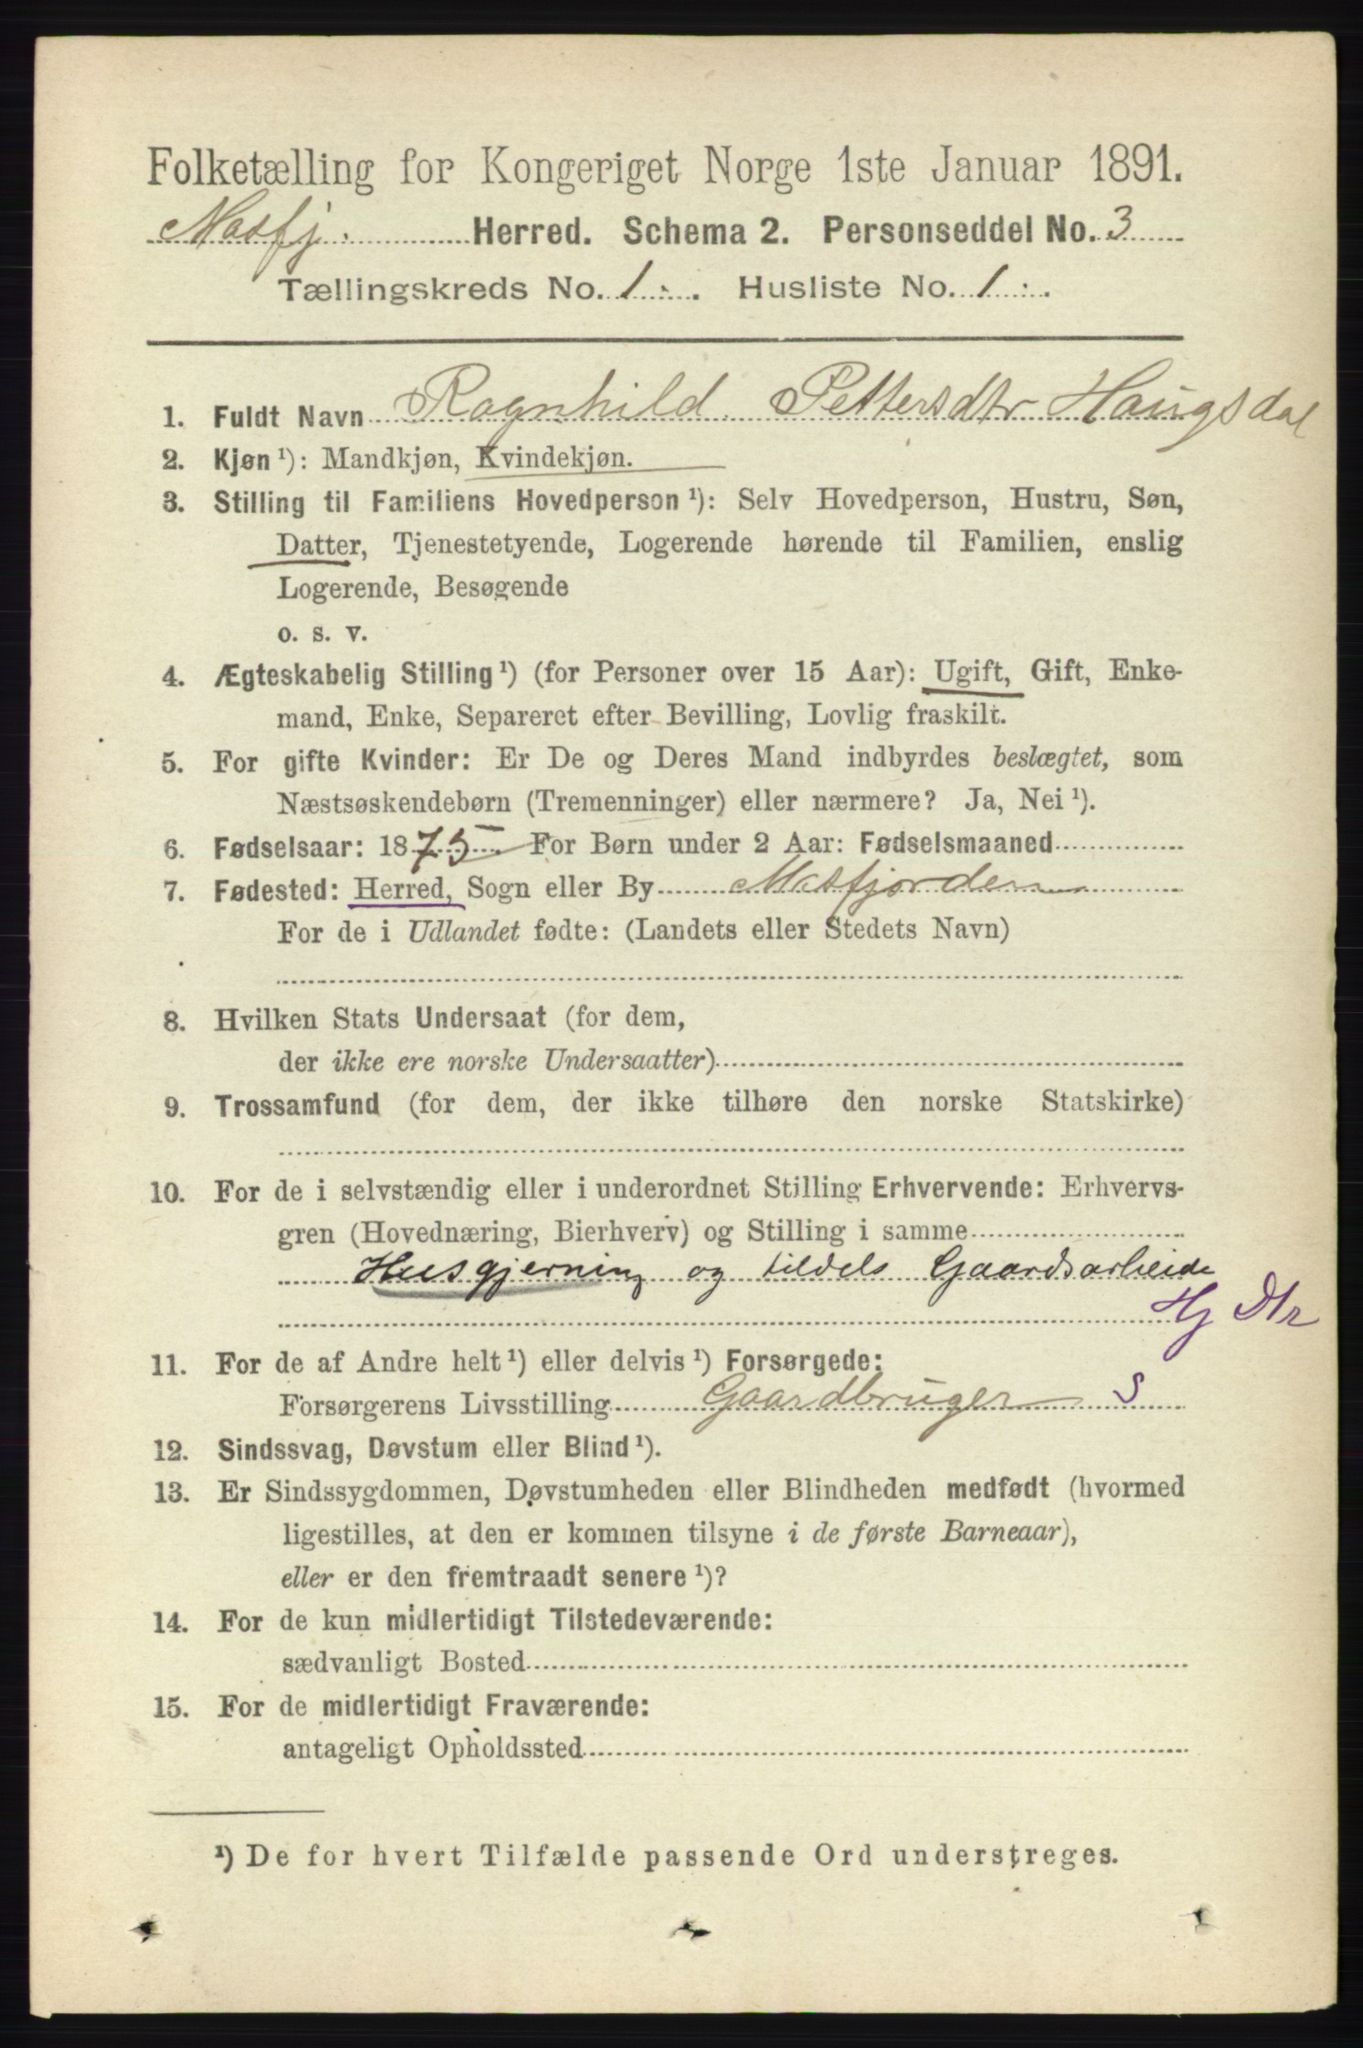 Folketælling for Kongeriget Norge 1ste Januar 1891.
Masfj. Herred. Schema 2. Personseddel No. 3
Tællingskreds No. 1. Husliste No. 1.
1. Fuldt Navn Ragnhild Pettersdtr Haugsdal
2. Kjøn ¹): Mandkjøn, Kvindekjøn.
3. Stilling til Familiens Hovedperson ¹): Selv Hovedperson, Hustru, Søn,
Datter, Tjenestetyende, Logerende hørende til Familien, enslig
Logerende, Besøgende
o. s. v.
4. Ægteskabelig Stilling ¹) (for Personer over 15 Aar): Ugift, Gift, Enke-
mand, Enke, Separeret efter Bevilling, Lovlig fraskilt.
5. For gifte Kvinder: Er De og Deres Mand indbyrdes beslægtet, som
Næstsøskendebørn (Tremenninger) eller nærmere? Ja, Nei ¹).
6. Fødselsaar: 1875. For Børn under 2 Aar: Fødselsmaaned
7. Fødested: Herred, Sogn eller By Masfjorden
For de i Udlandet fødte: (Landets eller Stedets Navn)
8. Hvilken Stats Undersaat (for dem,
der ikke ere norske Undersaatter)
9. Trossamfund (for dem, der ikke tilhøre den norske Statskirke)
10. For de i selvstændig eller i underordnet Stilling Erhvervende: Erhvervs-
gren (Hovednæring, Bierhverv) og Stilling i samme
Husgjerning og tildels Gaardsarbeide
Hj Dtr
11. For de af Andre helt ¹) eller delvis ¹) Forsørgede:
Forsørgerens Livsstilling Gaardbruger S
12. Sindssvag, Døvstum eller Blind ¹).
13. Er Sindssygdommen, Døvstumheden eller Blindheden medfødt (hvormed
ligestilles, at den er kommen tilsyne i de første Barneaar),
eller er den fremtraadt senere ¹)?
14. For de kun midlertidigt Tilstedeværende:
sædvanligt Bosted
15. For de midlertidigt Fraværende:
antageligt Opholdssted
¹) De for hvert Tilfælde passende Ord understreges.